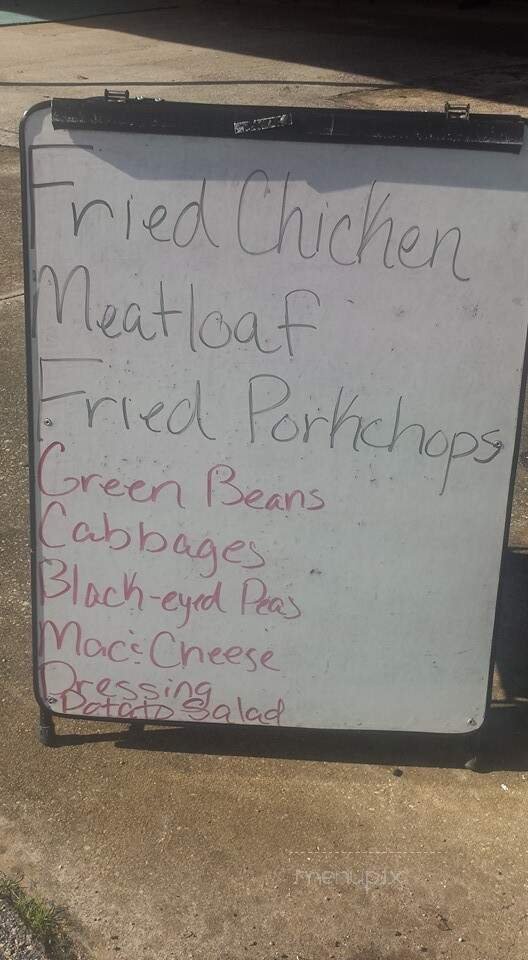 Fried Chicken
Meatloaf
Fried Porkchops
Green Beans
Cabbages
Black-eyed Peas
Mac & Cheese
Dressing
Potato Salad
menupix